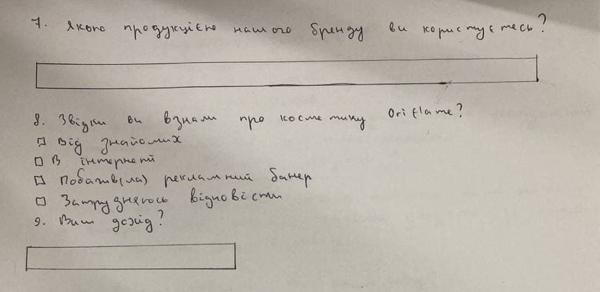 7. Якою продукцією нашого бренду ви користуєтесь?
8. Звідки ви взнали про косметику Oriflame?
Від знайомих
В інтернеті
Побачив(ла) рекламний банер
Затрудняюсь відповісти
9. Ваш дохід?